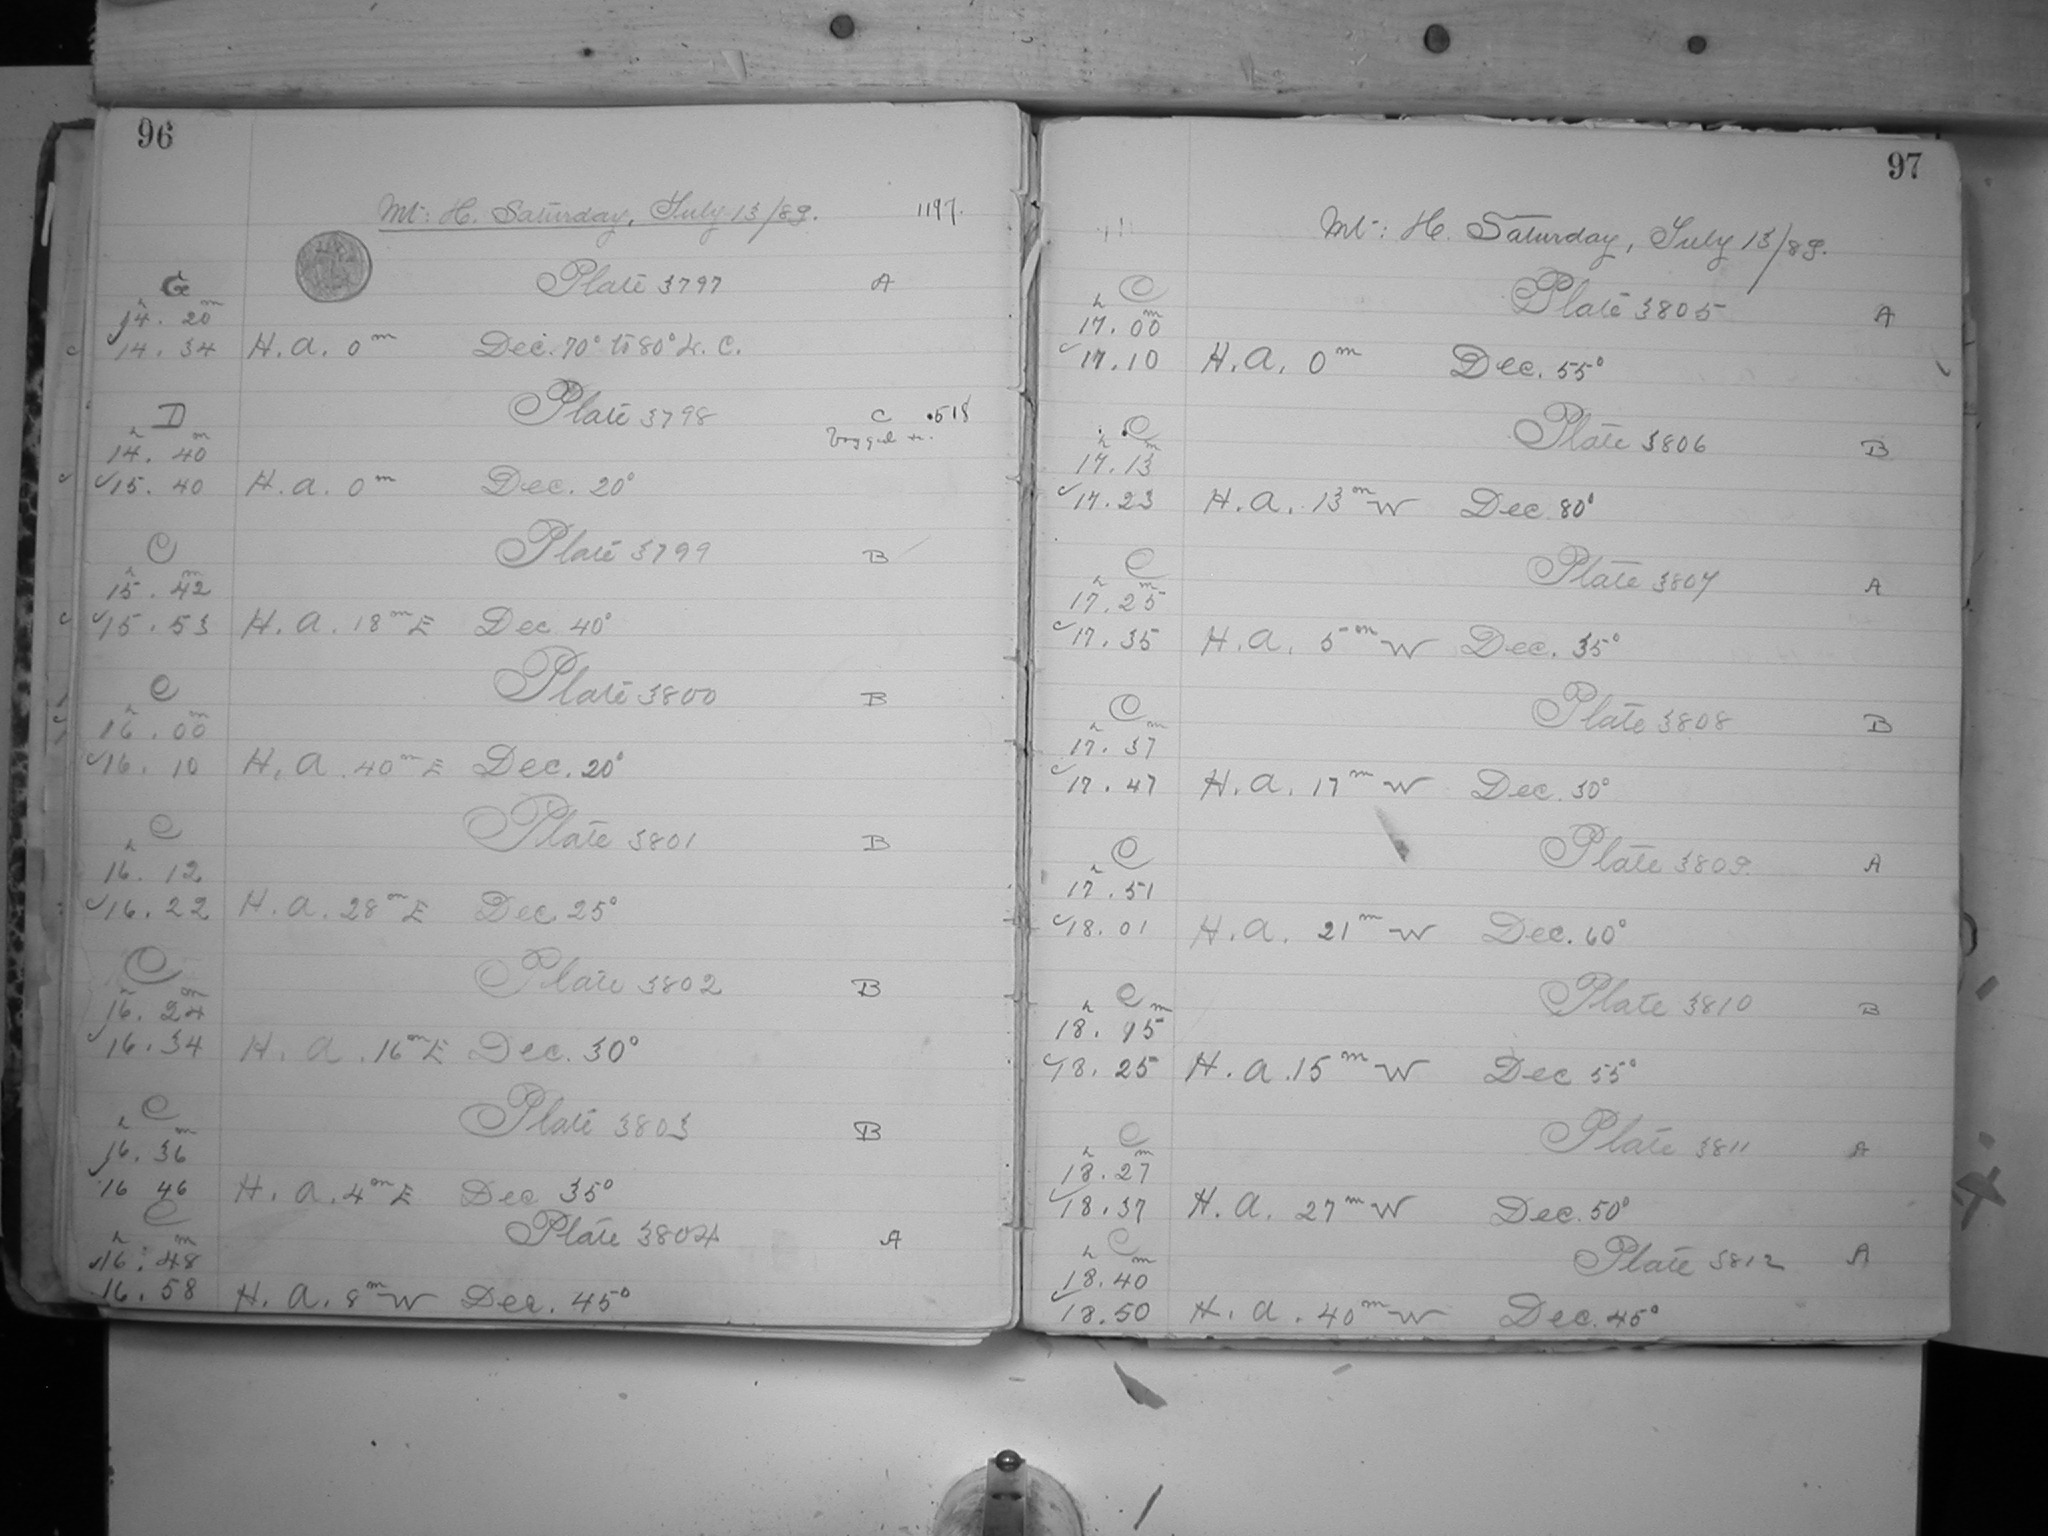 96
Mt: H. Saturday, July 13/89. 1197.
G Plate 3797 A
h m
14. 20
14. 34 H. a. 0 m Dec. 70° to 80° L. C.
D Plate 3798 C .518
h m
14. 40
15. 40 H. a. 0 m Dec. 20°
C Plate 3799 B
h m
15. 42
15. 53 H. a. 18 m E Dec 40°
C Plate 3800 B
h m
16. 00
16. 10 H. a. 40 m E Dec. 20°
C Plate 3801 B
h
16. 12
16. 22 H. a. 28 m E Dec. 25°
C Plate 3802 B
h m
16. 24
16. 34 H. a. 16 m E Dec. 30°
C Plate 3803 B
h m
16. 36
16 46 H. a. 4 m E Dec 35°
C Plate 3804 A
h m
16. 48
16. 58 H. a. 8 m W Dec. 45°
97
Mt: H. Saturday, July 13/89.
C Plate 3805 A
h m
17. 00
17. 10 H. a. 0 m Dec. 55°
C Plate 3806 B
h m
17. 13
17. 23 H. a. 13 m W Dec 80°
C Plate 3807 A
h m
17. 25
17. 35 H. a. 5 m W Dec. 35°
C Plate 3808 B
h m
17. 37
17. 47 H. a. 17 m W Dec. 30°
C Plate 3809 A
h
17. 51
18. 01 H. a. 21 m W Dec. 60°
C Plate 3810 B
h m
18. 15
18. 25 H. a. 15 m W Dec 55°
C Plate 3811 A
h m
18. 27
18. 37 H. a. 27 m W Dec. 50°
C Plate 3812 A
h m
18. 40
18. 50 H. a. 40 m W Dec. 45°